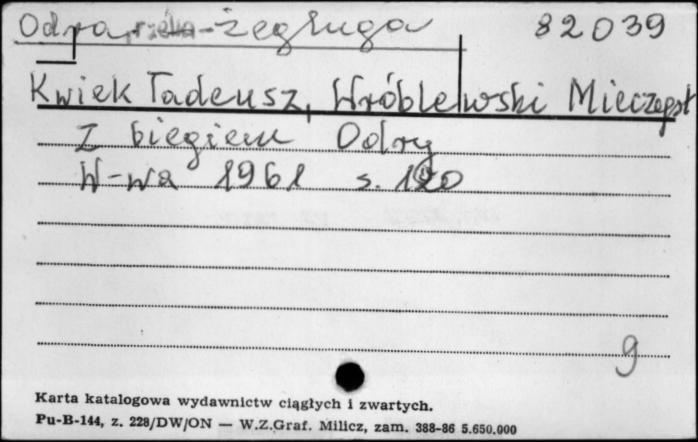 Odra, rzeka - żegluga 82039
Kwiek Tadeusz, Wróblewski Mieczysł
Z biegiem Odry
W-wa 1961 s. 120
9
Karta katalogowa wydawnictw ciągłych i zwartych.
Pu-B-144, z. 228/DW/ON — W.Z.Graf. Milicz, zam. 388-86 5.650.000